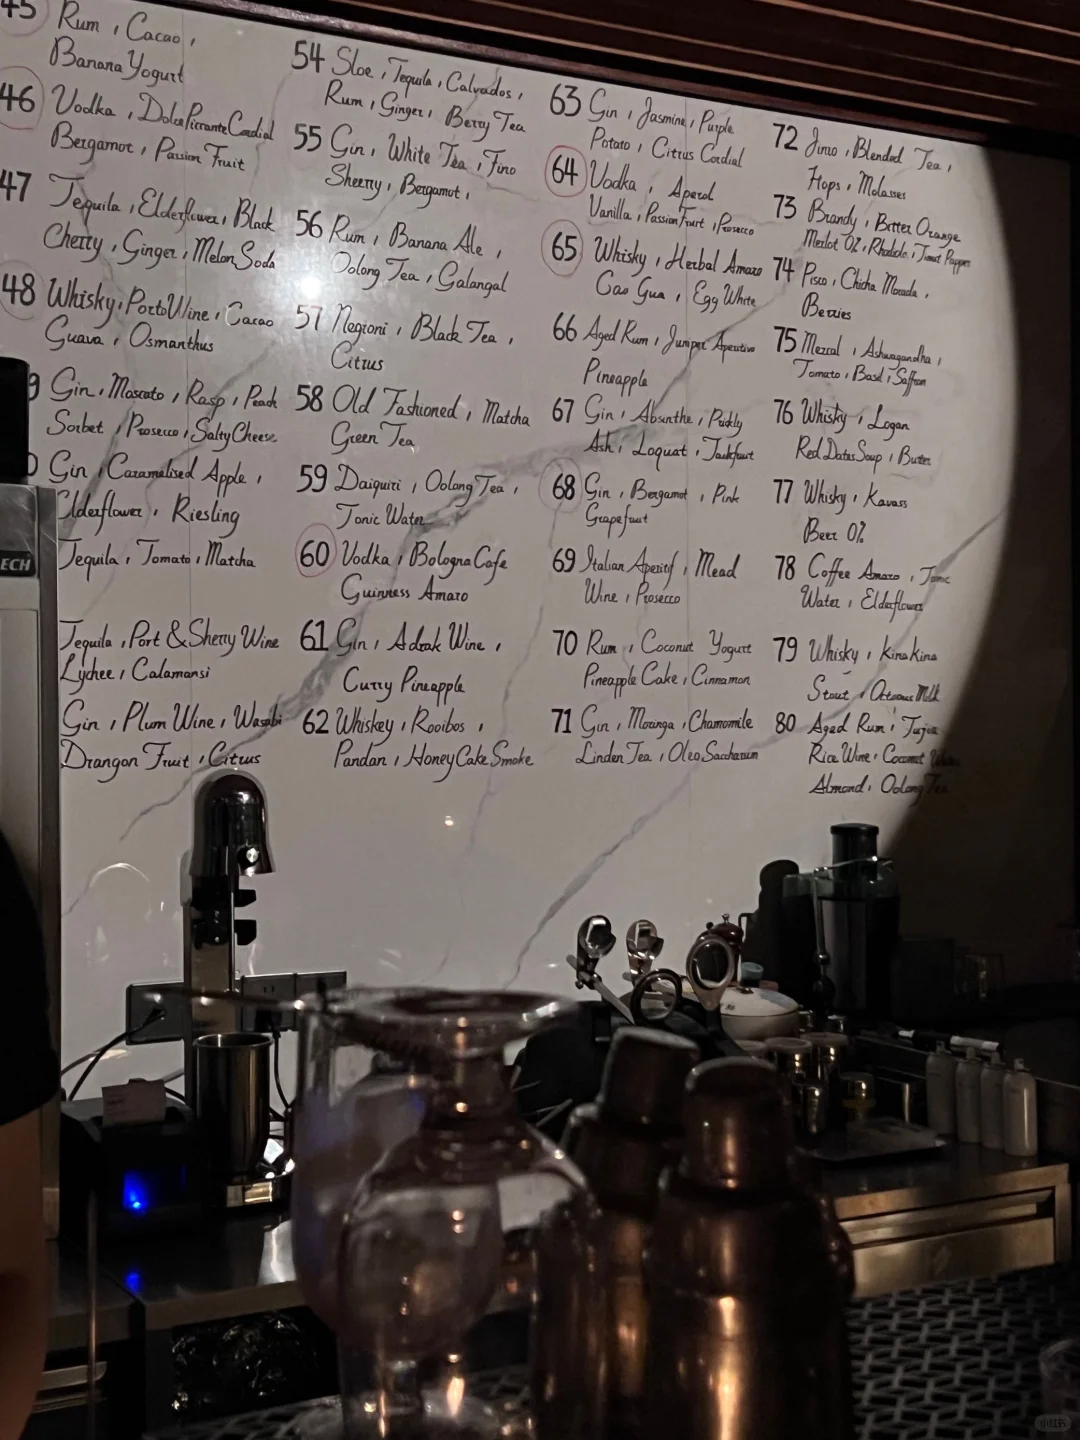 45 Rum, Cacao,
Banana Yogurt
46 Vodka, DolcePiccanteCordial
Bergamot, Passion Fruit
47 Tequila, Elderflower, Black
Cherry, Ginger, Melon Soda
48 Whisky, Porto Wine, Cacao
Guava, Osmanthus
Gin, Moscato, Rasp, Peach
Sorbet, Prosecco, Salty Cheese
Gin, Caramelised Apple,
Elderflower, Riesling
Tequila, Tomato, Matcha
Tequila, Port & Sherry Wine
Lychee, Calamansi
Gin, Plum Wine, Wasabi
Drangon Fruit, Citrus
54 Sloe, Tequila, Calvados,
Rum, Ginger, Berry Tea
55 Gin, White Tea, Fino
Sherry, Bergamot,
56 Rum, Banana Ale,
Oolong Tea, Galangal
57 Negroni, Black Tea,
Citrus
58 Old Fashioned, Matcha
Green Tea
59 Daiquiri, Oolong Tea,
Tonic Water
60 Vodka, Bologna Cafe
Guinness Amaro
61 Gin, Adrak Wine,
Curry Pineapple
62 Whiskey, Rooibos,
Pandan, Honey Cake Smoke
63 Gin, Jasmine, Purple
Potato, Citrus Cordial
64 Vodka, Aperol
Vanilla, Passion Fruit, Prosecco
65 Whisky, Herbal Amaro
Cao Gua, Egg White
66 Aged Rum, Juniper Aperitivo
Pineapple
67 Gin, Absinthe, Prickly
Ash, Loquat, Jackfruit
68 Gin, Bergamot, Pink
Grapefruit
69 Italian Aperitif, Mead
Wine, Prosecco
70 Rum, Coconut Yogurt
Pineapple Cake, Cinnamon
71 Gin, Moringa, Chamomile
Linden Tea, Oleo Saccharum
72 Blended Tea,
Hops, Molasses
73 Brandy, Bitter Orange
Merlot 0%, Timut Pepper
74 Pisco, Chicha Morada,
Berries
75 Mezcal, Ashwagandha,
Tomato, Basil, Saffron
76 Whisky, Logan
Red Dates Soup, Butter
77 Whisky, Kavass
Beer 0%
78 Coffee Amaro, Tonic
Water, Elderflower
79 Whisky, kina kina
Stout, Milk
80 Aged Rum,
Rice Wine, Coconut Water
Almond, Oolong Tea
ECH
小红书